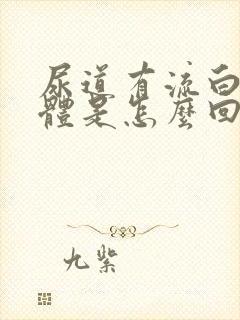 尿道有流白
體是怎麼回
九紫